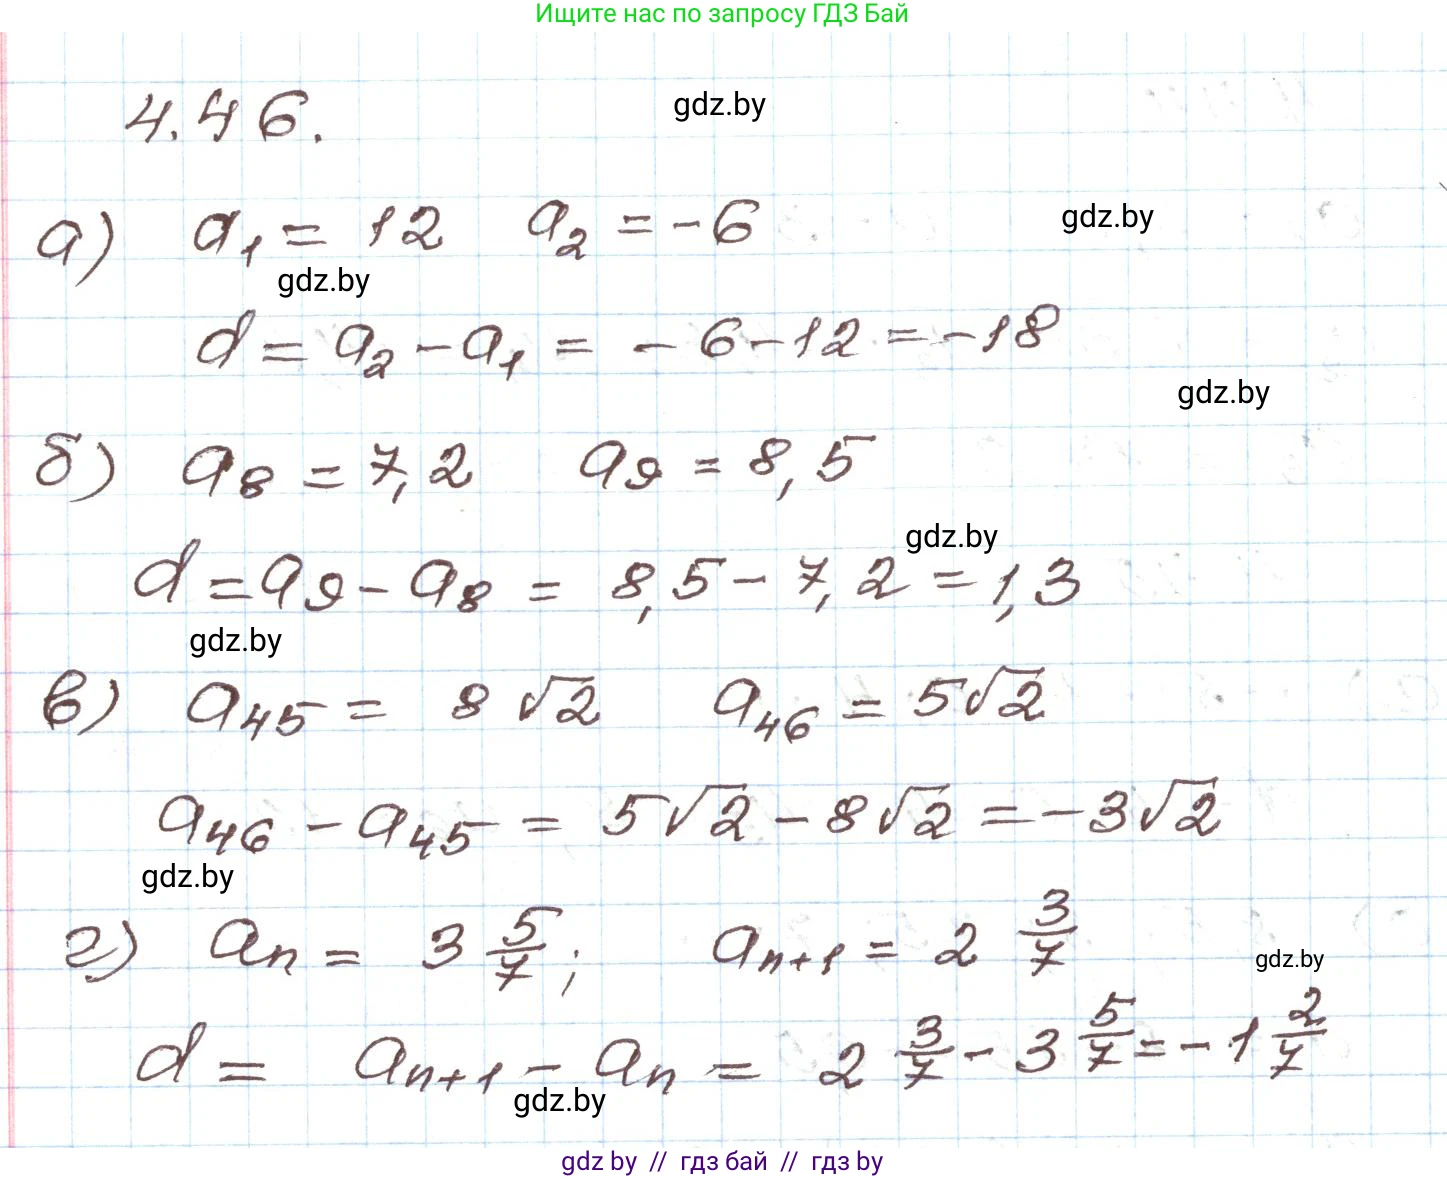 Ищите нас по запросу ГДЗ Бай
4.46.
gdz.by
а) a₁ = 12 a₂ = -6
gdz.by
gdz.by
d = a₂ - a₁ = -6 - 12 = -18
gdz.by
б) a₈ = 7,2 a₉ = 8,5
gdz.by
d = a₉ - a₈ = 8,5 - 7,2 = 1,3
gdz.by
в) a₄₅ = 8√2 a₄₆ = 5√2
a₄₆ - a₄₅ = 5√2 - 8√2 = -3√2
gdz.by
г) aₙ = 3 5/7; aₙ₊₁ = 2 3/7
gdz.by
d = aₙ₊₁ - aₙ = 2 3/7 - 3 5/7 = -1 2/7
gdz.by
gdz by // гдз бай // гдз by